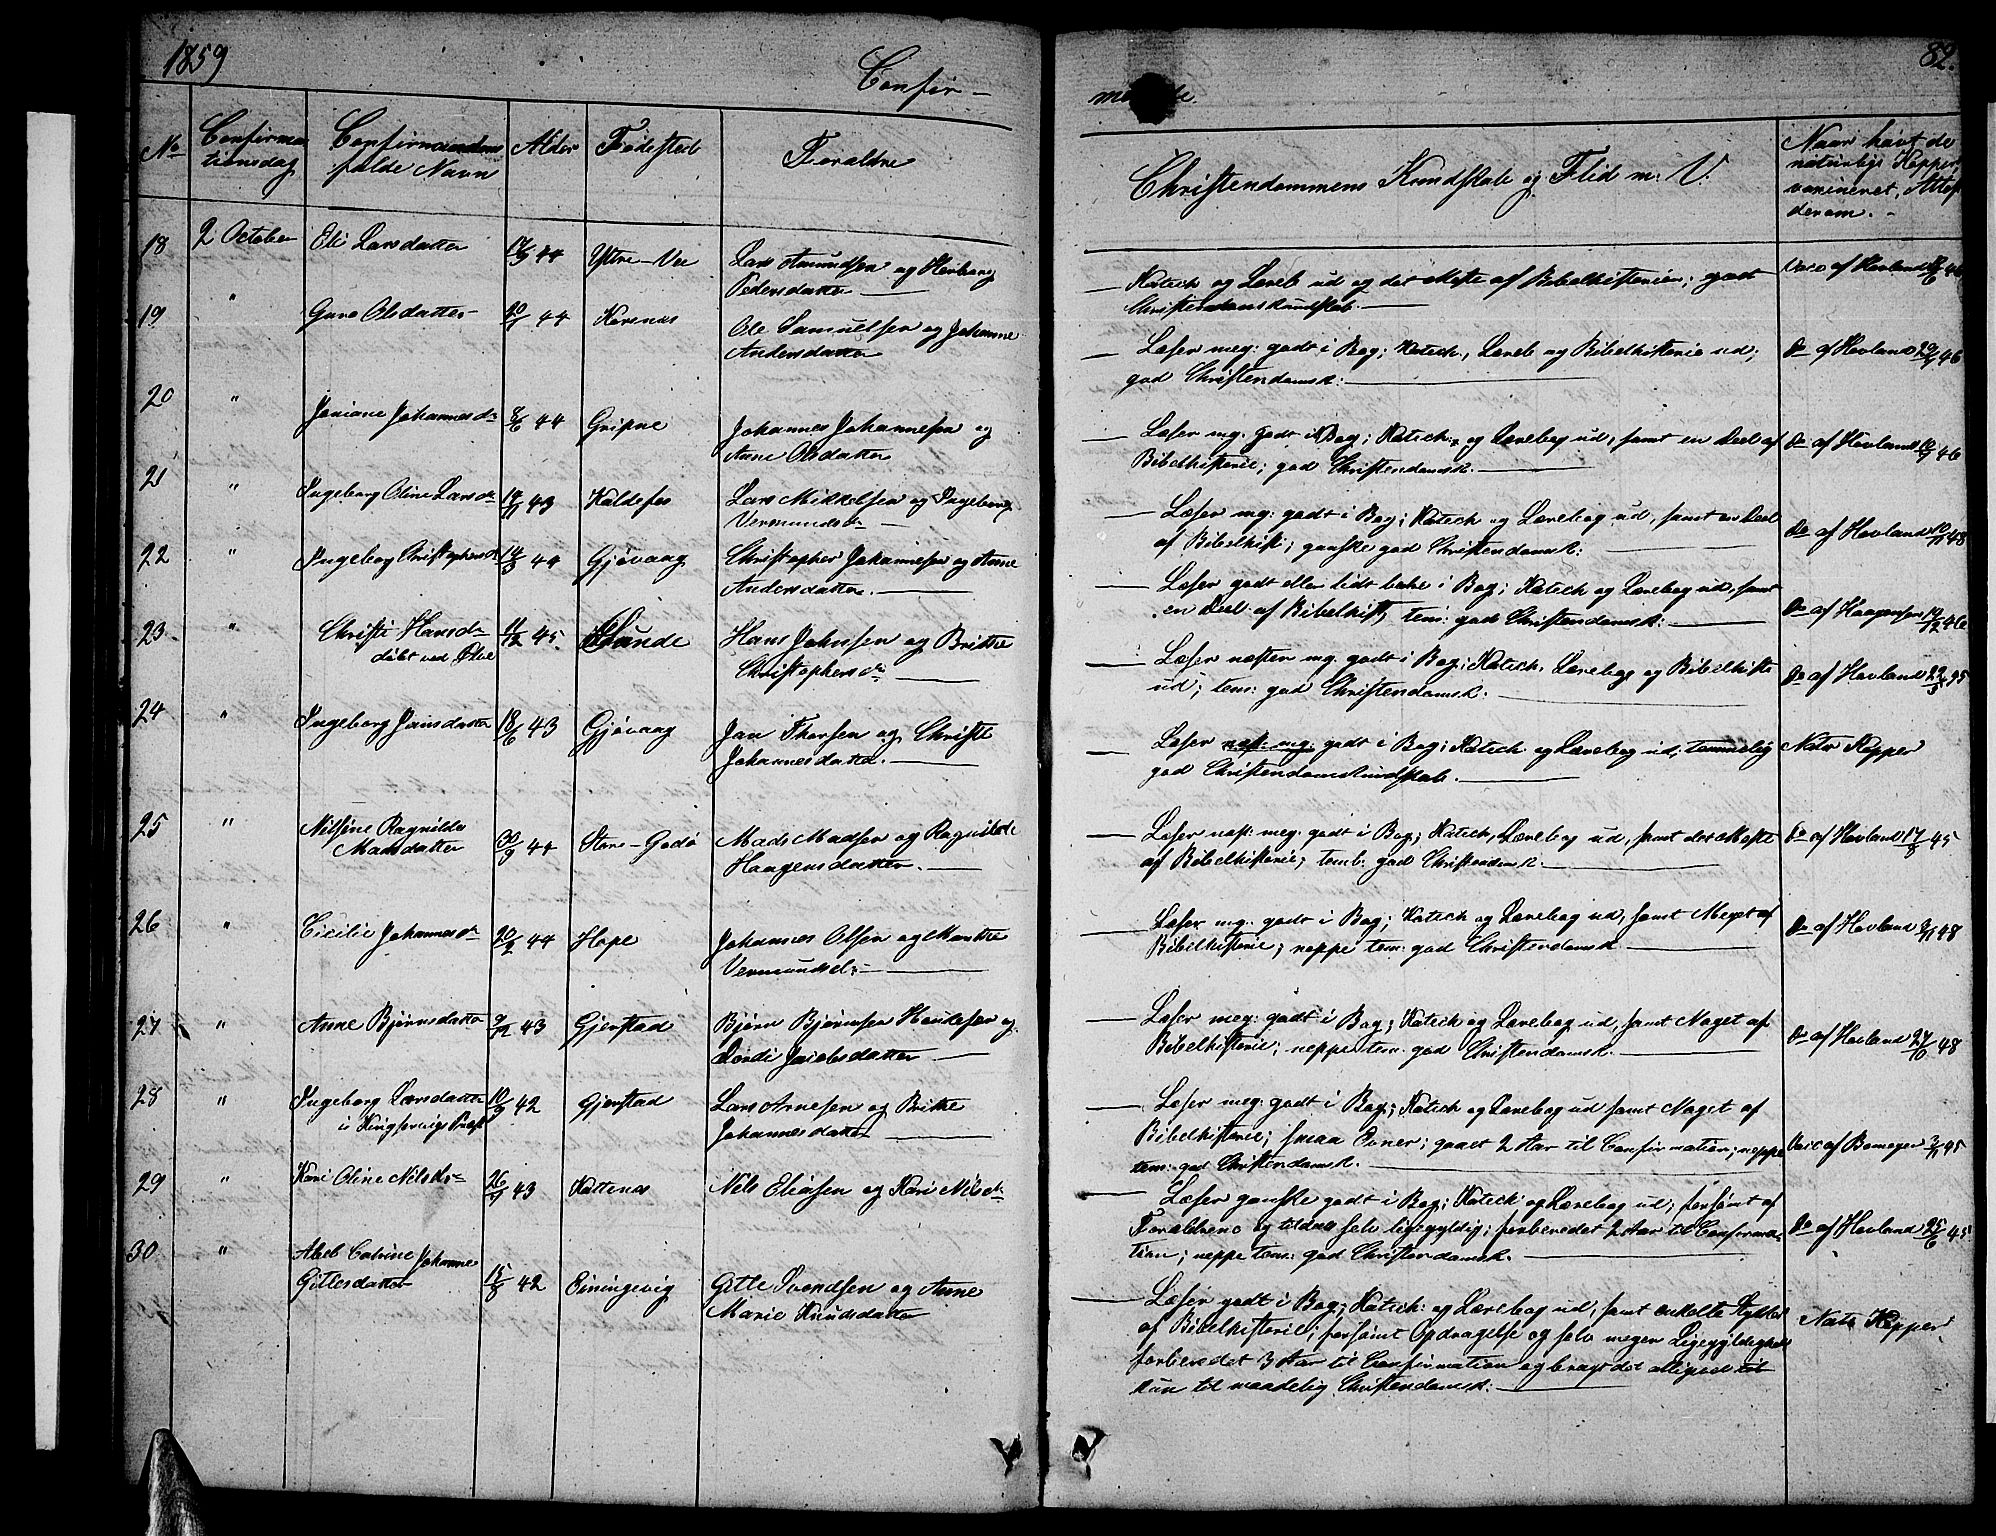 1859
82.
Confir-
de.
No
Confirma
tionsdag
Confirmandens
fulde Navn
Alder
Fødested
Forældre
Christendommens Kundskab og Flid m: V:
Naar havt de
naturlige Kopper
vaccineret, Attest
derom. -
18 2 October Eli Larsdatter 44 Ytre-Vee Lars Amundsen og
Pedersdatter
Katech og Læreb ud og det Meste af Bibelhistorien; godt
Christendomskundskab.
Vacc af Havland 46
19 " Guro Olsdatter 44 Ole Samuelsen og Johanne
Andersdatter
Læser meg: godt i Bog; Katech, Læreb og Bibelhistorie ud;
god Christendomsk:
Do af Havland 46
20 " Johannesdr 8/6 44 Gripne Johannes Johannesen og
Anne Olsdatter
Læser mg: godt i Bog; Katech og Lærebog ud, samt en Deel af
Bibelhistorie; god Christendomsk.
Do af Havland 46
21 " Ingeborg Oline Larsdr 43 Kaldefos Lars Mikkelsen og Ingeborg
Vermundsdr
Læser mg: godt i Bog; Katech og Lærebog ud, samt en Deel
af Bibelhist; ganske god Christendomsk:
Do af Havland 48
22 " Ingeborg Christophersdr 44 Gjøvaag Christopher Johannesen og Anne
Andersdatter.
Læser godt eller lidt bedre i Bog; Katech og Lærebog ud, samt
en Deel af Bibelhist, tem: god Christendomsk:
Do af Haagensen 46
23 " Christi Hansdr 45. Sunde Hans Johnsen og Brithe
døbt ved Øbve
Christophersdr
Læser næsten mg. godt i Bog; Katech, Lærebog og Bibelhistorie
ud; tem: god Christendomsk:
Do af Havland
24 " Ingeborg Jansdatter 18/6 43 Gjøvaag Jan Thorsen og Christi
Johannesdatter.
Læser næst: mg. godt i Bog; Katech og Lærebog ud; temmelig
god Christendomskundskab.
Natr Kopper
25 " Nilsine Ragnilda
Madsdatter 30/9 44 Store-Godø Mads Madsen og Ragnilda
Haagensdatter.
Læser næst: meg: godt i Bog; Katech, Lærebog ud, samt det Meste
af Bibelhistorie; teml: god Christendomsk.
Do af Havland 17/8 45
26 " Cicilie Johannesdr 20/2 44 Hope Johannes Olsen og Marthe
Vermundsd:
Læser mg: godt i Bog; Katech og Lærebog ud, samt Meget af
Bibelhistorie; neppe tem: god Christendomsk.
Do af Havland 48
27 " Anne Bjørnsdatter 43 Gjerstad Bjørn Bjørnsen og
Jacobsdatter
Læser meg: godt i Bog; Katech og Lærebog ud, samt Noget af
Bibelhistorie; neppe tem: god Christendomsk.
Do af Havland 48
28 " Ingeborg Larsdatter 42 Gjerstad Lars Arnesen og Brithe
i Kingservigs Præst
Johannesdatter
Læser meg: godt i Bog; Katech og Lærebog ud samt Noget af
Bibelhistorie; smaa Evner; gaaet 2 Aar til Confirmation; neppe
tem: god Christendomsk.
Vacc af 45
29 " Kari Oline Nilsdr 43 Kattenes Nils Eliasen og Kari Nilsdr
Læser ganske godt i Bog; Katech og Lærebog ud; forsømt af
Forældrene og selv ligegyldig; forberedet 2 Aar til Confirma-
tion; neppe tem: god Christendomsk.
Do af Havland 25/6 45
30 " Abel Catrine Johanne
Gitlesdatter 15/8 42 Einingevig Gitle Svendsen og Anne
Marie Knudsdatter
Læser godt i Bog; Katech: og Lærebog ud, samt enkelte Stykker
af Bibelhistorie; forsømt Opdragelse og selv megen Ligegyldighed
forberedet 3 Aar til Confirmation og bragt det alligevel
kun til maadelig Christendomsk:
Natr Kopper.